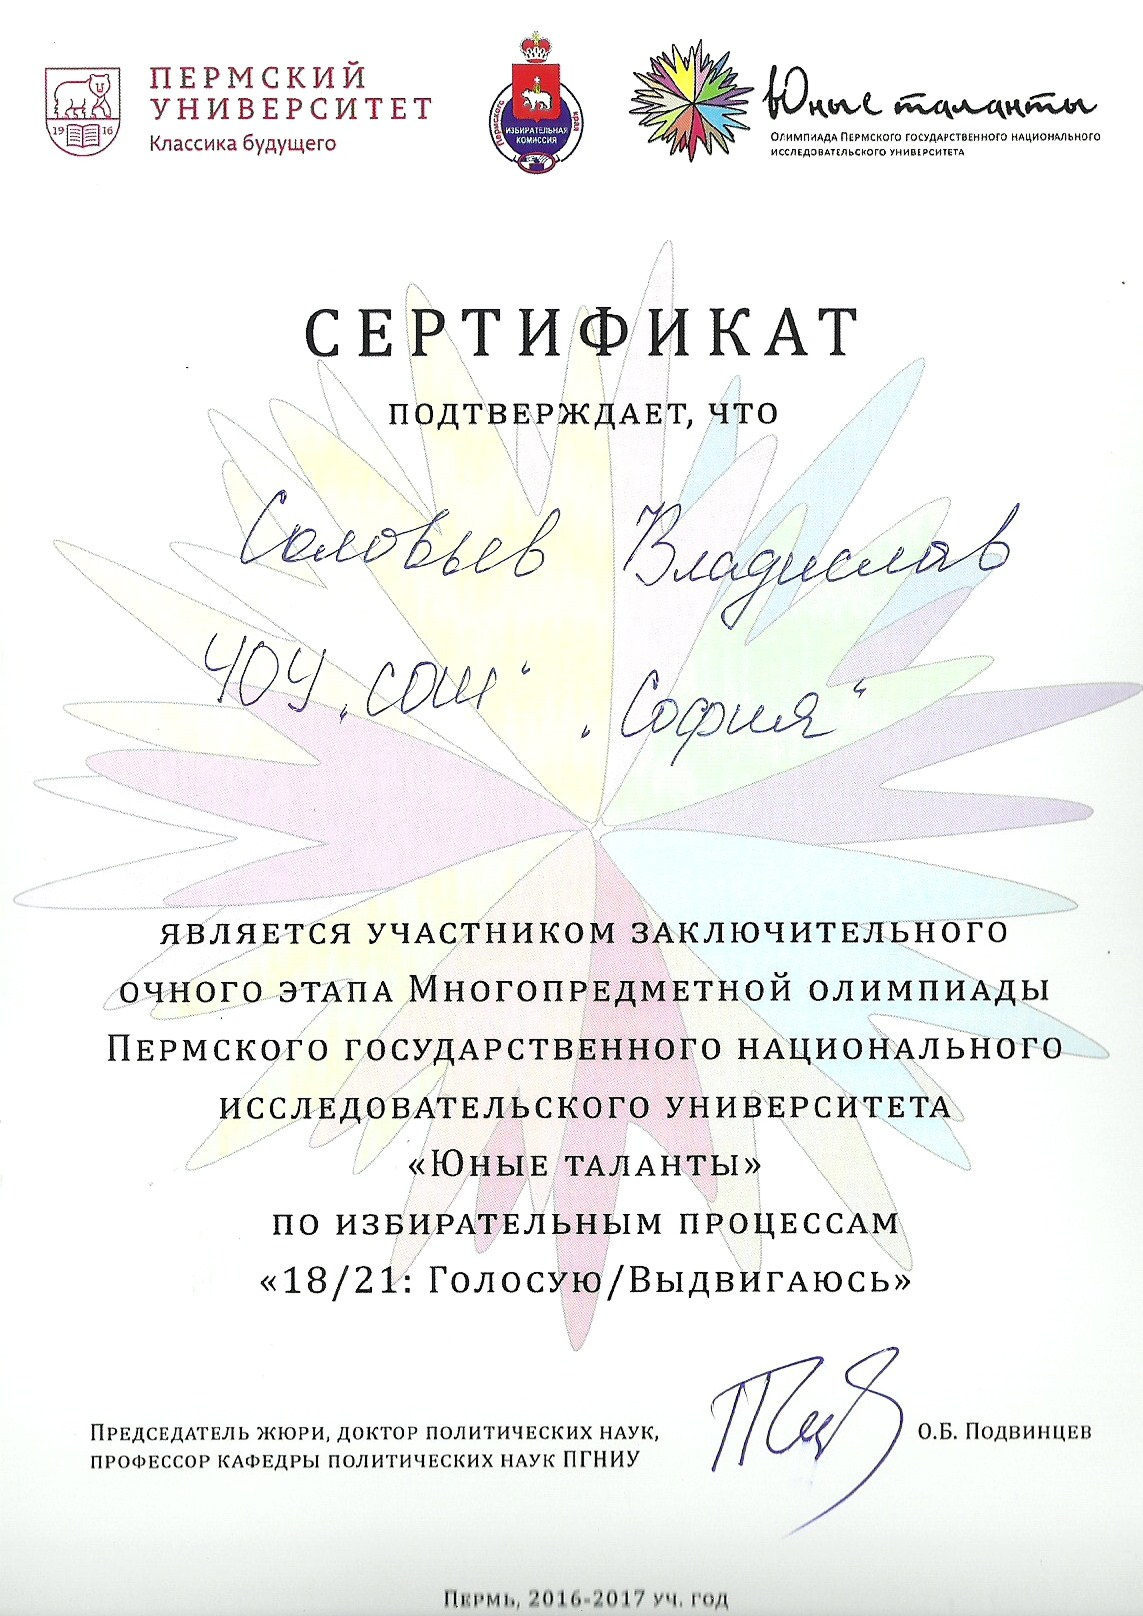 ПЕРМСКИЙ
УНИВЕРСИТЕТ
Классика будущего
1916
Пермского края
ИЗБИРАТЕЛЬНАЯ
КОМИССИЯ
Юные таланты
Олимпиада Пермского государственного национального
исследовательского университета
СЕРТИФИКАТ
ПОДТВЕРЖДАЕТ, ЧТО
Соловьев Владислав
ЧОУ „СОШ“ „София“
ЯВЛЯЕТСЯ УЧАСТНИКОМ ЗАКЛЮЧИТЕЛЬНОГО
ОЧНОГО ЭТАПА МНОГОПРЕДМЕТНОЙ ОЛИМПИАДЫ
ПЕРМСКОГО ГОСУДАРСТВЕННОГО НАЦИОНАЛЬНОГО
ИССЛЕДОВАТЕЛЬСКОГО УНИВЕРСИТЕТА
«ЮНЫЕ ТАЛАНТЫ»
ПО ИЗБИРАТЕЛЬНЫМ ПРОЦЕССАМ
«18/21: ГОЛОСУЮ/ВЫДВИГАЮСЬ»
ПРЕДСЕДАТЕЛЬ ЖЮРИ, ДОКТОР ПОЛИТИЧЕСКИХ НАУК,
ПРОФЕССОР КАФЕДРЫ ПОЛИТИЧЕСКИХ НАУК ПГНИУ
О.Б. ПОДВИНЦЕВ
ПЕРМЬ, 2016-2017 УЧ. ГОД